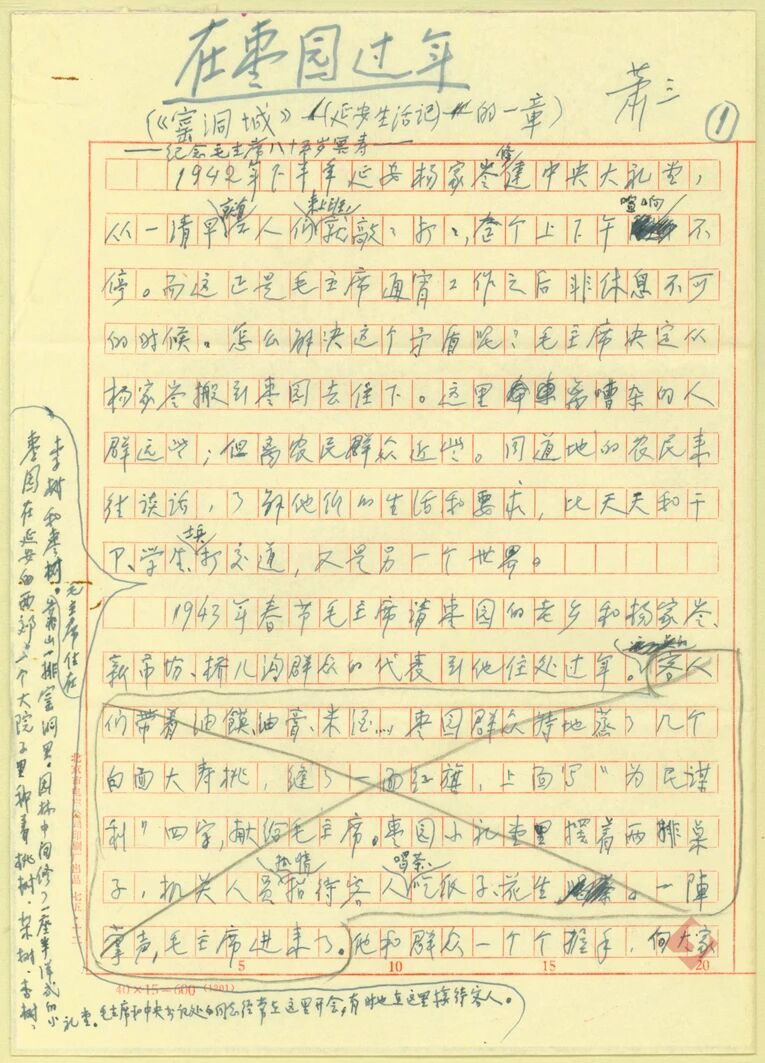 在枣园过年
萧三
①
(《窑洞城》(延安生活记)的一章)
——纪念毛主席八十岁冥寿——
1942年下半年延安杨家岭修建中央大礼堂,
从一清早
人们就敲敲打打,
个上下午
喧响
不
停。而这正是毛主席通宵工作之后非休息不可
的时候。怎么解决这个矛盾呢?毛主席决定从
杨家岭搬到枣园去住下。这里
离嘈杂的人
群远些;但离农民群众近些。同道地的农民来
往谈话,了解他们的生活和要求,比天天和干
部、学生、士兵打交道,又是另一个世界。
1943年春节毛主席请枣园的老乡和杨家岭、
新市场、桥儿沟群众的代表到他住处过年。
客人
们带着油馍、油膏、米酒…枣园群众特地蒸了几个
白面大寿桃,缝了一面红旗,上面写"为民谋
利"四字,献给毛主席。枣园小礼堂里摆着两排桌
子,机关人员热情招待客人吃瓜子、花生、喝茶。一阵
掌声,毛主席进来了。他和群众一个个握手,向大家
枣园在延安的西郊,一个大院子里种着桃树、梨树、李树、
李树和枣树。毛主席住在靠山一排窑洞里。园林中间修了一座半洋式的小
礼堂。毛主席和中央书记处的同志经常在这里开会,有时也在这里接待客人。
5 10 15 20
40×15=600 (1201)